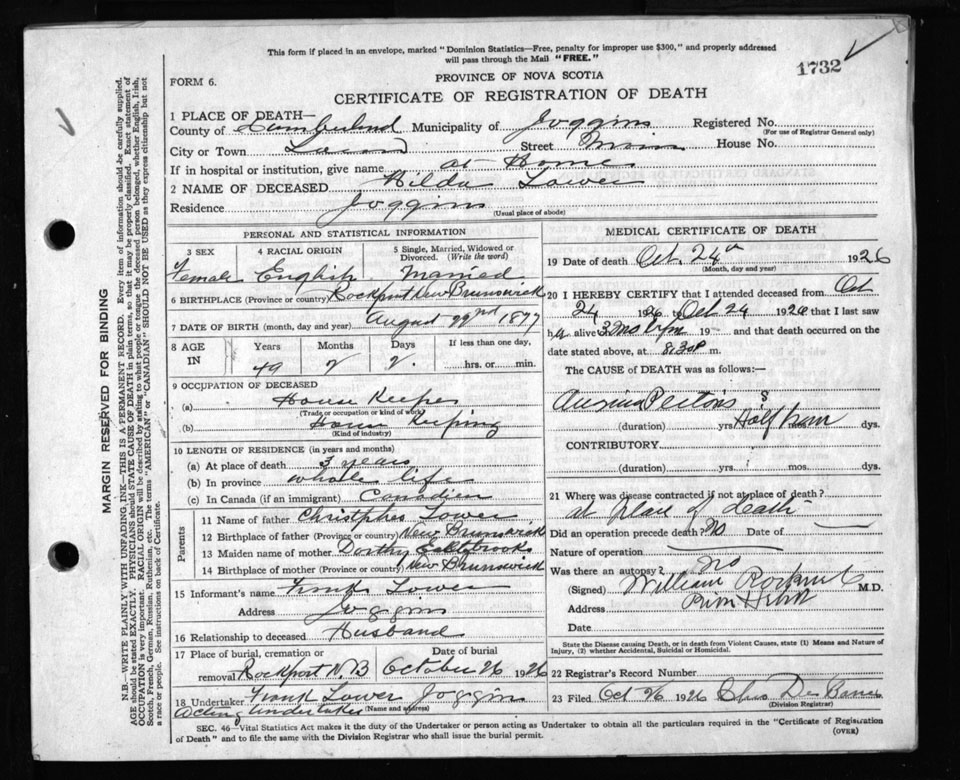 This form if placed in an envelope, marked "Dominion Statistics—Free, penalty for improper use $300," and properly addressed
will pass through the Mail "FREE."
1732
FORM 6.
PROVINCE OF NOVA SCOTIA
CERTIFICATE OF REGISTRATION OF DEATH
1 PLACE OF DEATH—
County of Cumberland Municipality of Joggins Registered No.
(For use of Registrar General only)
City or Town Street Main House No.
If in hospital or institution, give name at Home
2 NAME OF DECEASED Hilda Tower
Residence Joggins
(Usual place of abode)
PERSONAL AND STATISTICAL INFORMATION
3 SEX 4 RACIAL ORIGIN 5 Single, Married, Widowed or Divorced. (Write the word)
Female English Married
6 BIRTHPLACE (Province or country) Rockport New Brunswick
7 DATE OF BIRTH (month, day and year) August 22nd 1877
8 AGE IN Years Months Days If less than one day,
49 2 2 hrs. or min.
9 OCCUPATION OF DECEASED
(a) House Keeper
(Trade or occupation or kind of work)
(b) House Keeping
(Kind of industry)
10 LENGTH OF RESIDENCE (in years and months)
(a) At place of death 3 years
(b) In province whole life
(c) In Canada (if an immigrant) Canadien
Parents
11 Name of father Tower
12 Birthplace of father (Province or country) New Brunswick
13 Maiden name of mother Dorthy
14 Birthplace of mother (Province or country) New Brunswick
15 Informant's name Frank Tower
Address Joggins
16 Relationship to deceased Husband
17 Place of burial, cremation or removal Rockport N.B Date of burial October 26 1926
18 Undertaker Frank Tower Joggins
(Name and address)
Acting undertaker
MEDICAL CERTIFICATE OF DEATH
19 Date of death Oct. 24th 1926
(Month, day and year)
20 I HEREBY CERTIFY that I attended deceased from Oct
24 1926 to Oct 24 1926 that I last saw
h alive 19 and that death occurred on the
date stated above, at 8.30 P m.
The CAUSE of DEATH was as follows:—
Angina Pectoris
(duration) yrs Half hour dys.
CONTRIBUTORY
(duration) yrs mos. dys.
21 Where was disease contracted if not at place of death?
at place of death
Did an operation precede death? No Date of
Nature of operation
Was there an autopsy? no
(Signed) William M.D.
Address River Hebert
Date
State the Disease causing Death, or in Death from Violent Causes, state (1) Means and Nature of
Injury, (2) whether Accidental, Suicidal or Homicidal.
22 Registrar's Record Number
23 Filed Oct 26 1926
(Division Registrar)
SEC. 46—Vital Statistics Act makes it the duty of the Undertaker or person acting as Undertaker to obtain all the particulars required in the "Certificate of Registration
of Death" and to file the same with the Division Registrar who shall issue the burial permit. (OVER)
MARGIN RESERVED FOR BINDING
N.B.—WRITE PLAINLY WITH UNFADING INK—THIS IS A PERMANENT RECORD. Every item of information should be carefully supplied.
AGE should be stated EXACTLY. PHYSICIANS should STATE CAUSE OF DEATH in plain terms, so that it may be properly classified. Exact statement of
OCCUPATION is very important. RACIAL ORIGIN will be described by stating to what people or tongue the deceased person belonged, whether English, Irish,
Scotch, French, German, Russian, Ruthenian, etc. The terms "AMERICAN" or "CANADIAN" SHOULD NOT BE USED as they express citizenship but not
a race or people. See instructions on back of Certificate.